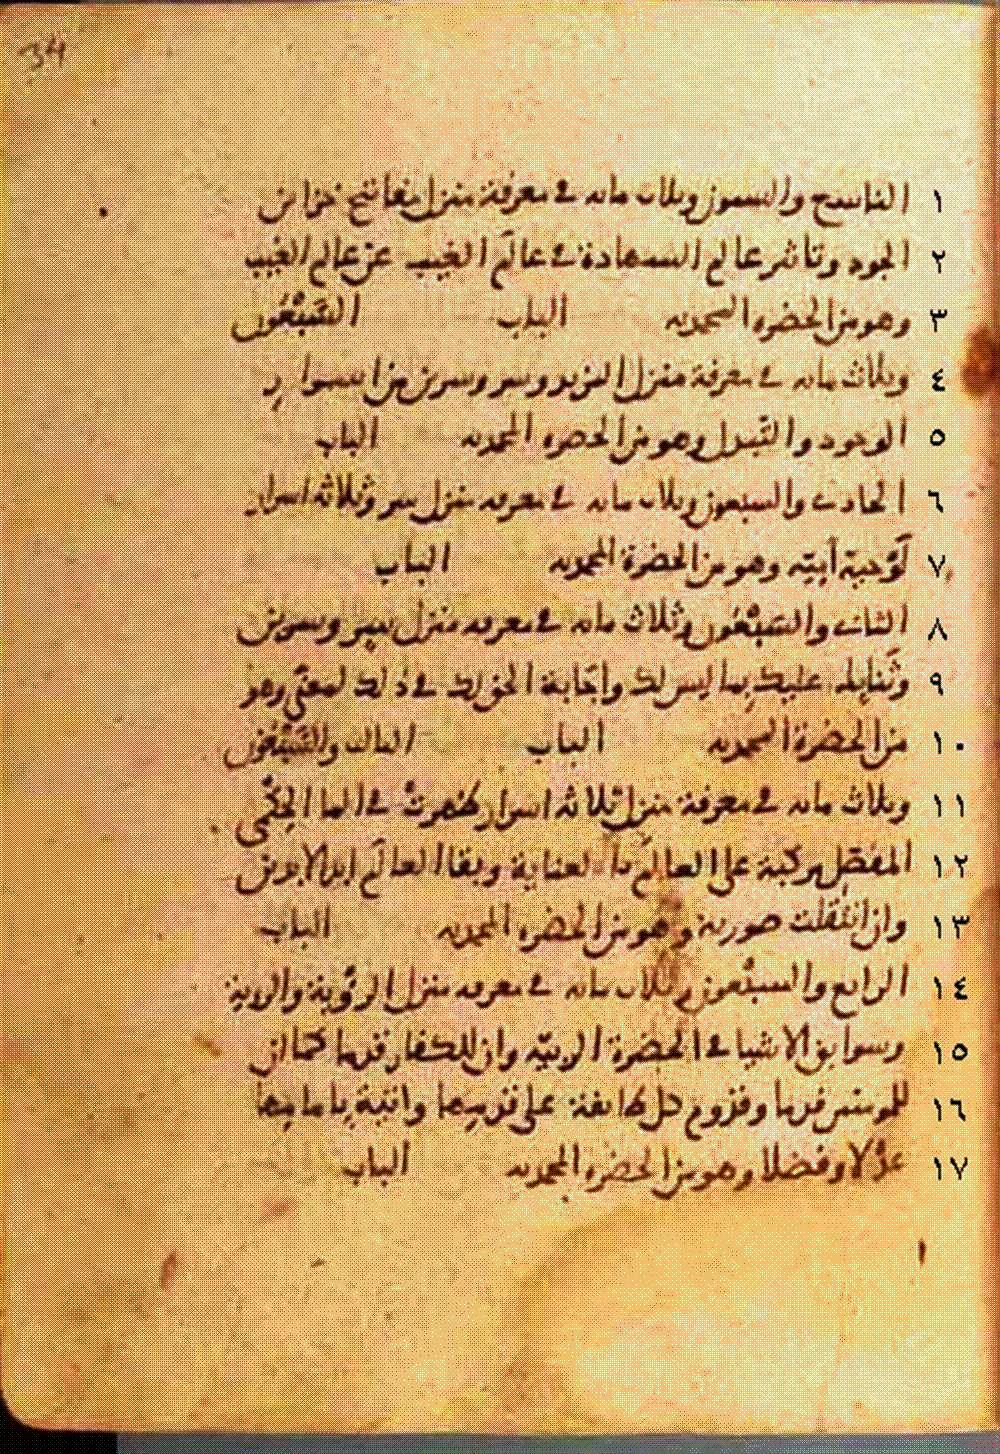 34
١ التاسع والستون وثلاث مائة في معرفة منزل مفاتيح خزائن
٢ الجود وتأثير عالم الشهادة في عالم الغيب عن عالم الغيب
٣ وهو من الحضرة المحمدية الباب السَبْعُون
٤ وثلاث مائة في معرفة منزل المزيد وسر وسرين من اسرار
٥ الوجود والتبدل وهو من الحضرة المحمدية الباب
٦ الحادي والسبعون وثلاث مائة في معرفة منزل سر وثلاثة اسرار
٧ لَوْحية أمّية وهو من الحضرة المحمدية الباب
٨ الثاني والسَبْعُون وثلاث مائة في معرفة منزل سر وسرين
٩ وثَنايك عليك بما ليس لك وإجَابة الحق لك في ذلك لمعنًى وهو
١٠ من الحضرة المحمدية الباب الثالث والسَبْعُون
١١ وثلاث مائة في معرفة منزل ثلاثة اسرار ظهرتْ في الما الحِكْمي
١٢ المفضّل مركبة على العالَم بالعناية وبقا العالَم ابد الابدين
١٣ وان انتقلت صورته وهو من الحضرة المحمدية الباب
١٤ الرابع والسبْعون وثلاث مائة في معرفة منزل الرؤية والرؤية
١٥ وسوابق الاشيا في الحضرة الربيّة وان للكفار قدما كما ان
١٦ للمومنين قدما وقدوم كل طائفة على قدمها واتية بامامها
١٧ عدْلا وفضلا وهو من الحضرة المحمدية الباب